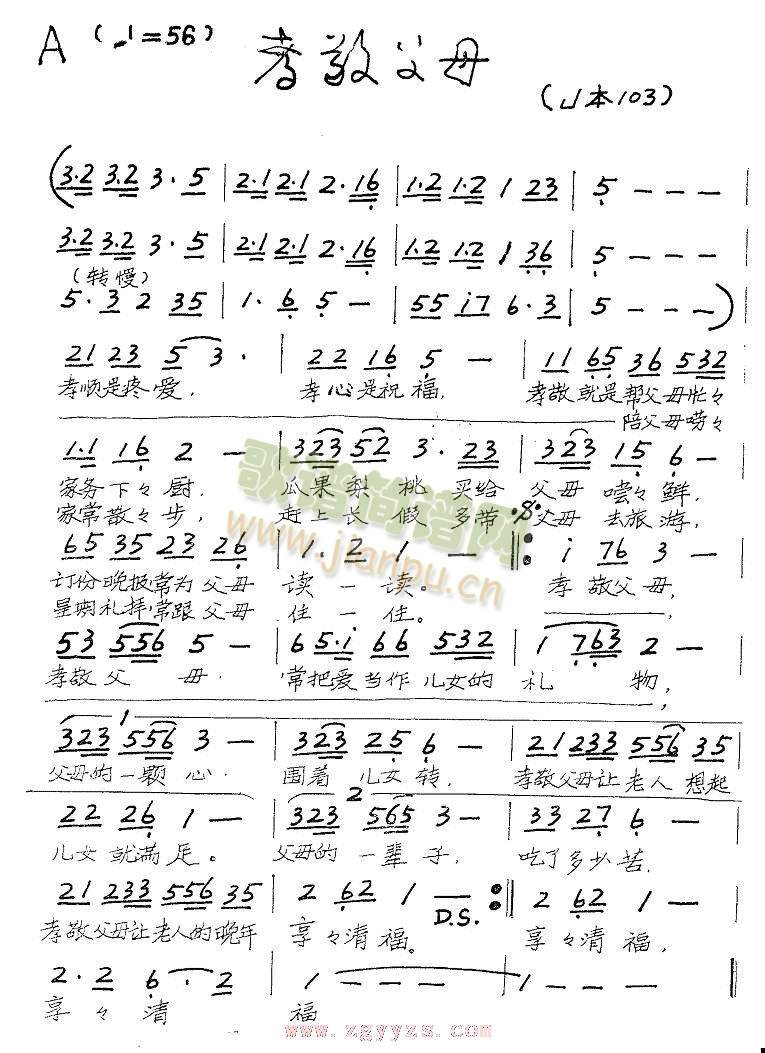 A (♩=56) 孝敬父母
(山本103)
(3.2 3.2 3. 5 | 2.1 2.1 2. 16 | 1.2 1.2 1 23 | 5 - - - |
3.2 3.2 3. 5 | 2.1 2.1 2. 16 | 1.2 1.2 1 36 | 5 - - - |
(转慢)
5. 3 2 35 | 1. 6 5 - | 55 i7 6. 3 | 5 - - -) |
21 23 5 3. | 22 16 5 - | 11 65 36 532 |
孝顺是疼爱, 孝心是祝福, 孝敬就是帮父母忙々
陪父母唠々
1.1 16 2 - | 323 52 3. 23 | 323 15 6 - |
家务下々厨, 瓜果梨桃买给父母嚐々鲜,
家常散々步, 赶上长假多带父母去旅游,
65 35 23 26 | 1. 2 1 - :‖: i 76 3 - |
订份晚报常为父母读一读。 孝敬父母,
星期礼拜常跟父母住一住。
53 556 5 - | 65.i 66 532 | 1 763 2 - |
孝敬父母 常把爱当作儿女的礼物,
1
323 556 3 - | 323 25 6 - | 21 233 556 35 |
父母的一颗心. 围着儿女转, 孝敬父母让老人想起
2
22 26 1 - | 323 565 3 - | 33 27 6 - |
儿女就满足。 父母的一辈子, 吃了多少苦.
21 233 556 35 | 2 62 1 - :‖ 2 62 1 - |
D.S.
孝敬父母让老人的晚年享々清福。 享々清福,
2. 2 6. 2 | 1 - - - | 1 - - - ‖
享々清福
歌谱简谱网
www.jianpu.cn
www.zgyyzs.com